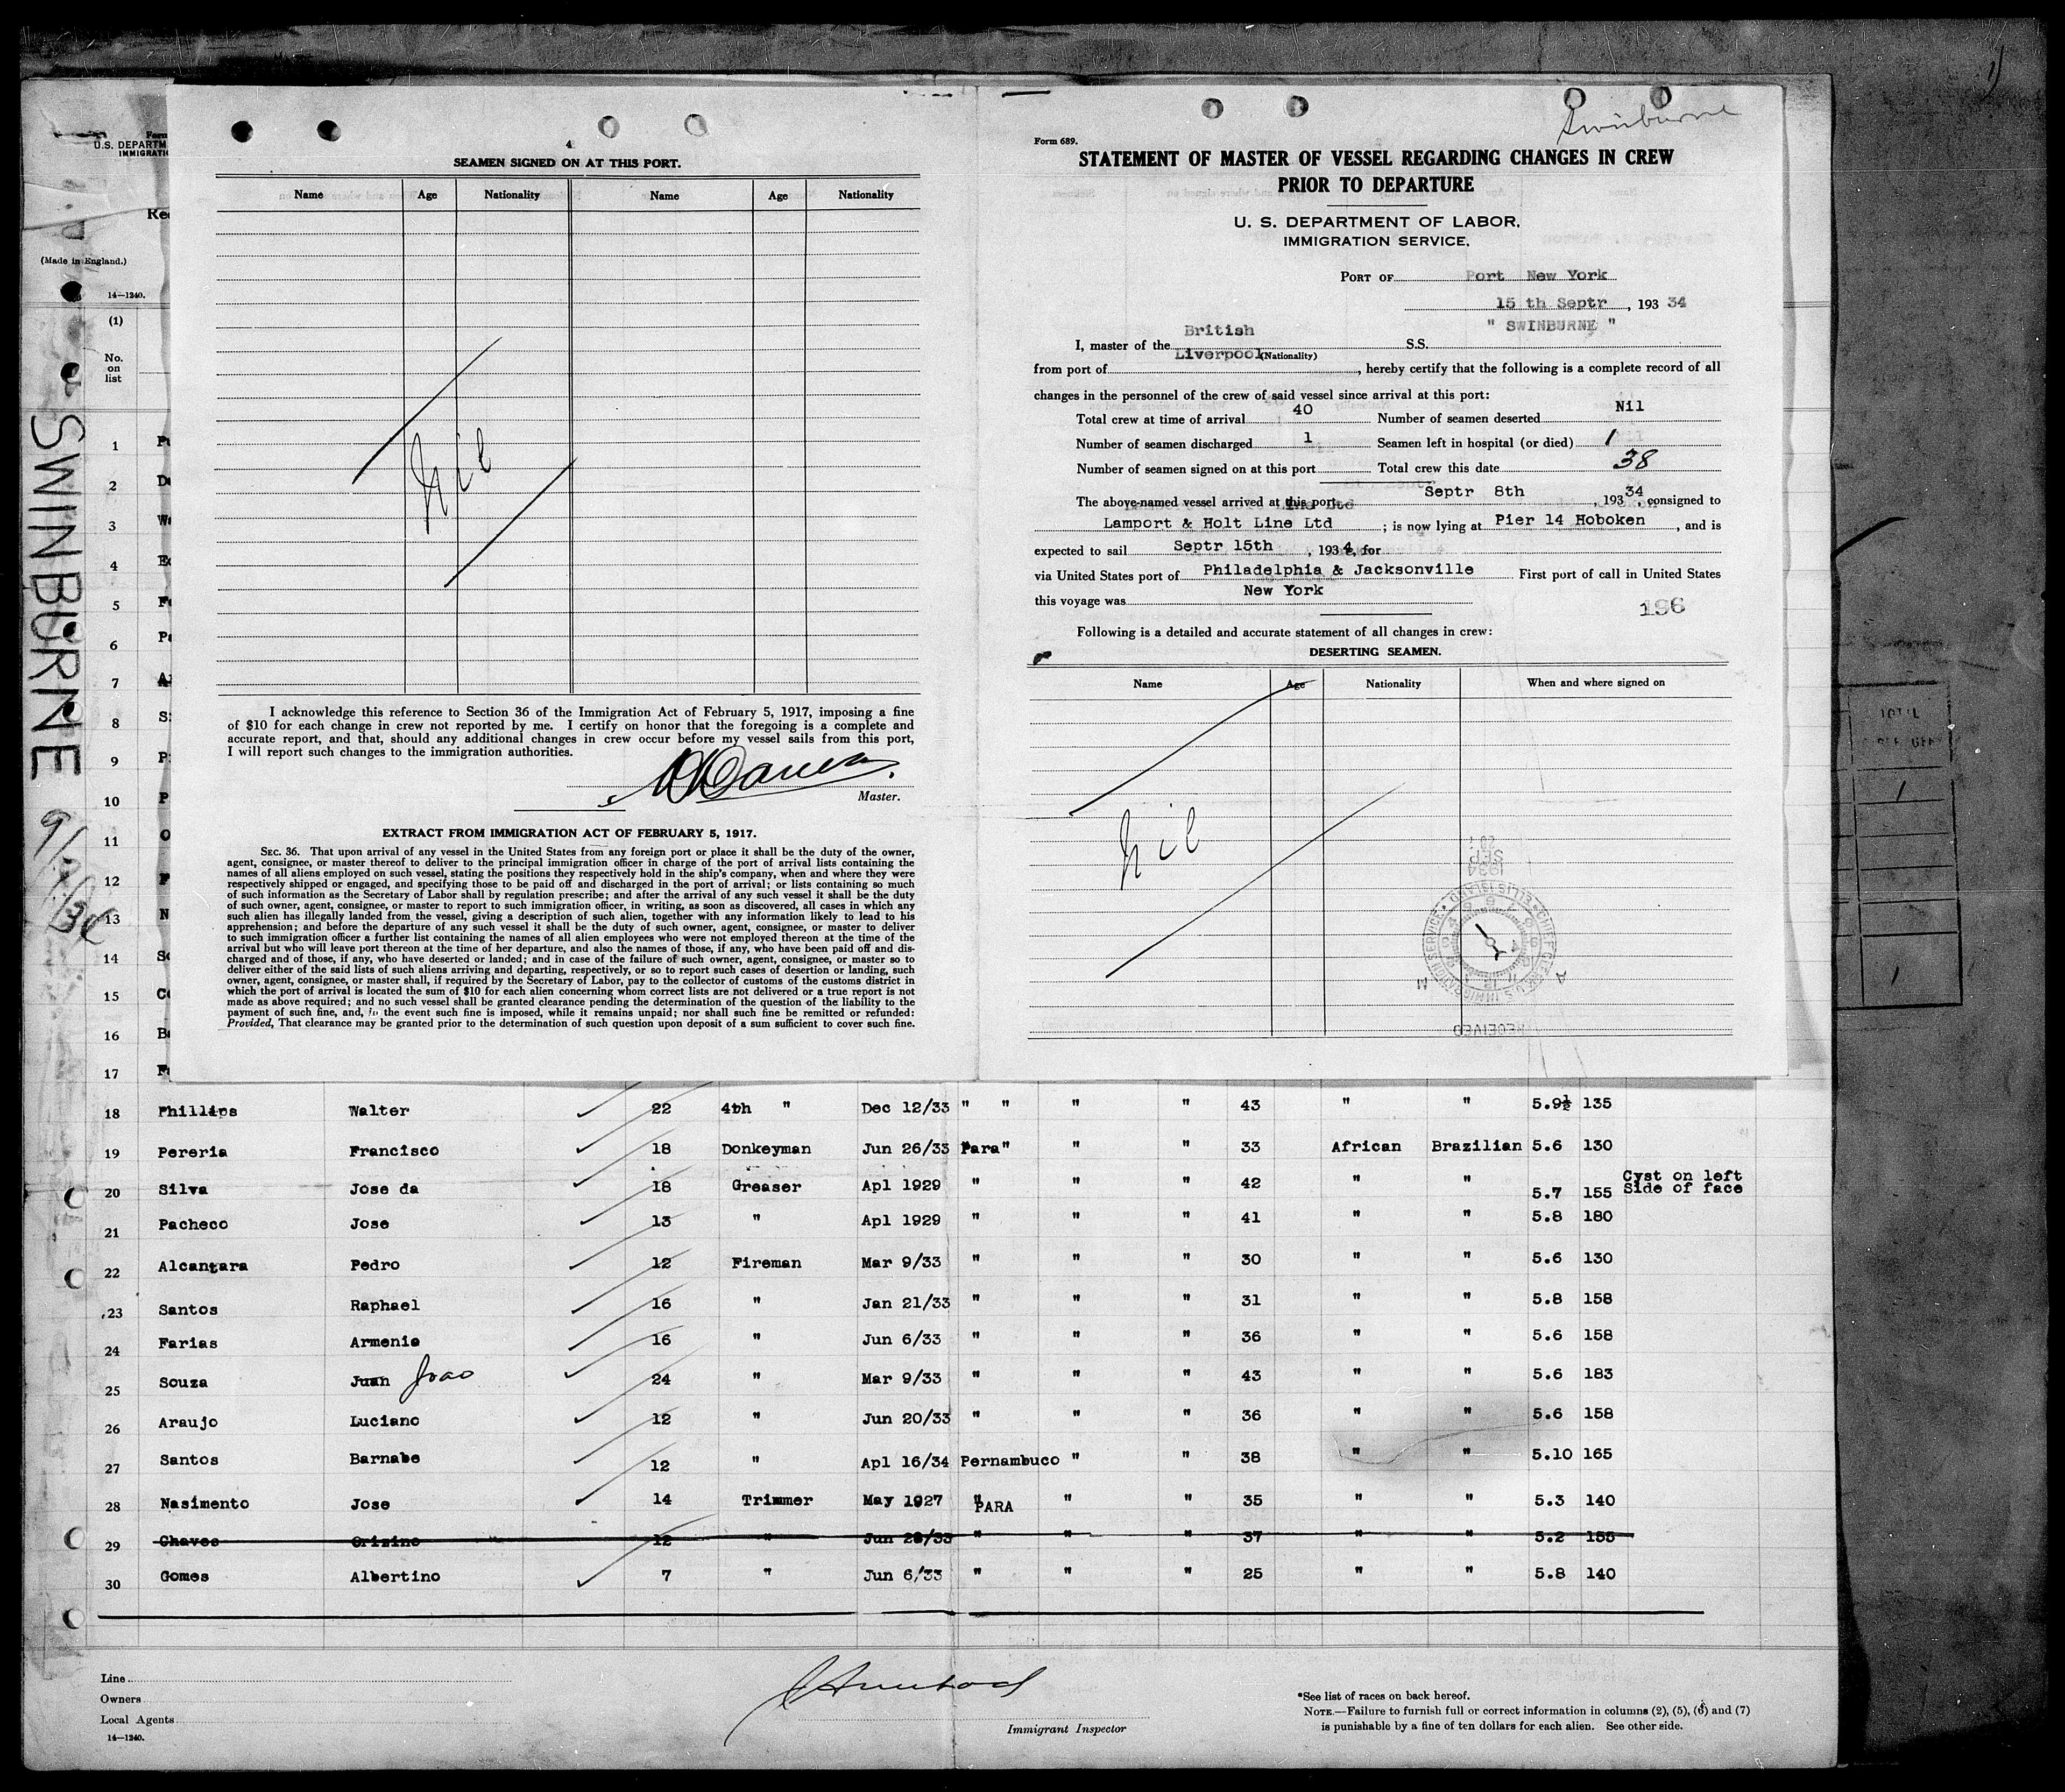 Form
U.S. DEPARTM
IMMIGRATI
(Made in England.)
14—1240.
(1)
No.
on
list
SWINBURNE
4
SEAMEN SIGNED ON AT THIS PORT.
Name Age Nationality Name Age Nationality
Nil
I acknowledge this reference to Section 36 of the Immigration Act of February 5, 1917, imposing a fine
of $10 for each change in crew not reported by me. I certify on honor that the foregoing is a complete and
accurate report, and that, should any additional changes in crew occur before my vessel sails from this port,
I will report such changes to the immigration authorities.
Master.
EXTRACT FROM IMMIGRATION ACT OF FEBRUARY 5, 1917.
SEC. 36. That upon arrival of any vessel in the United States from any foreign port or place it shall be the duty of the owner,
agent, consignee, or master thereof to deliver to the principal immigration officer in charge of the port of arrival lists containing the
names of all aliens employed on such vessel, stating the positions they respectively hold in the ship's company, when and where they were
respectively shipped or engaged, and specifying those to be paid off and discharged in the port of arrival; or lists containing so much
of such information as the Secretary of Labor shall by regulation prescribe; and after the arrival of any such vessel it shall be the duty
of such owner, agent, consignee, or master to report to such immigration officer, in writing, as soon as discovered, all cases in which any
such alien has illegally landed from the vessel, giving a description of such alien, together with any information likely to lead to his
apprehension; and before the departure of any such vessel it shall be the duty of such owner, agent, consignee, or master to deliver
to such immigration officer a further list containing the names of all alien employees who were not employed thereon at the time of the
arrival but who will leave port thereon at the time of her departure, and also the names of those, if any, who have been paid off and dis-
charged and of those, if any, who have deserted or landed; and in case of the failure of such owner, agent, consignee, or master so to
deliver either of the said lists of such aliens arriving and departing, respectively, or so to report such cases of desertion or landing, such
owner, agent, consignee, or master shall, if required by the Secretary of Labor, pay to the collector of customs of the customs district in
which the port of arrival is located the sum of $10 for each alien concerning whom correct lists are not delivered or a true report is not
made as above required; and no such vessel shall be granted clearance pending the determination of the question of the liability to the
payment of such fine, and, in the event such fine is imposed, while it remains unpaid; nor shall such fine be remitted or refunded:
Provided, That clearance may be granted prior to the determination of such question upon deposit of a sum sufficient to cover such fine.
Swinburne
Form 689.
STATEMENT OF MASTER OF VESSEL REGARDING CHANGES IN CREW
PRIOR TO DEPARTURE
U. S. DEPARTMENT OF LABOR,
IMMIGRATION SERVICE.
PORT OF Port New York
15 th Septr , 193 34
British " SWINBURNE "
I, master of the S.S.
Liverpool (Nationality)
from port of , hereby certify that the following is a complete record of all
changes in the personnel of the crew of said vessel since arrival at this port:
Total crew at time of arrival 40 Number of seamen deserted Nil
Number of seamen discharged 1 Seamen left in hospital (or died) 1
Number of seamen signed on at this port Total crew this date 38
The above-named vessel arrived at this port Septr 8th , 193 34 , consigned to
Lamport & Holt Line Ltd ; is now lying at Pier 14 Hoboken , and is
expected to sail Septr 15th , 1934, for
via United States port of Philadelphia & Jacksonville First port of call in United States
this voyage was New York
196
Following is a detailed and accurate statement of all changes in crew:
DESERTING SEAMEN.
Name Age Nationality When and where signed on
Nil
1
2
3
4
5
6
7
8
9
10
11
12
13
14
15
16
17
18 Phillips Walter 22 4th " Dec 12/33 " " " " 43 " " 5.9½ 135
19 Pereria Francisco 18 Donkeyman Jun 26/33 Para" " " 33 African Brazilian 5.6 130
20 Silva Jose da 18 Greaser Apl 1929 " " " 42 " " 5.7 155 Cyst on left
Side of face
21 Pacheco Jose 13 " Apl 1929 " " " 41 " " 5.8 180
22 Alcantara Pedro 12 Fireman Mar 9/33 " " " 30 " " 5.6 130
23 Santos Raphael 16 " Jan 21/33 " " " 31 " " 5.8 158
24 Farias Armenio 16 " Jun 6/33 " " " 36 " " 5.6 158
25 Souza Juan Joao 24 " Mar 9/33 " " " 43 " " 5.6 183
26 Araujo Luciano 12 " Jun 20/33 " " " 36 " " 5.6 158
27 Santos Barnabe 12 " Apl 16/34 Pernambuco " " 38 " " 5.10 165
28 Nasimento Jose 14 Trimmer May 1927 " PARA " " 35 " " 5.3 140
29 Chaves Orizino 12 " Jun 28/33 " " " 37 " " 5.2 155
30 Gomes Albertino 7 " Jun 6/33 " " " 25 " " 5.8 140
Line
Owners
Local Agents
14—1240.
Immigrant Inspector
*See list of races on back hereof.
NOTE.—Failure to furnish full or correct information in columns (2), (5), (6) and (7)
is punishable by a fine of ten dollars for each alien. See other side.